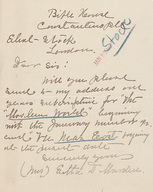 Bible House
Constantinople
Elliot Stock
London.
Dear Sir:
Will you please
send to my address one
years subscription for the
Moslem World, beginning
not the January number
and The Near East, beginning
at the present date
Sincerely yours
(Mrs)